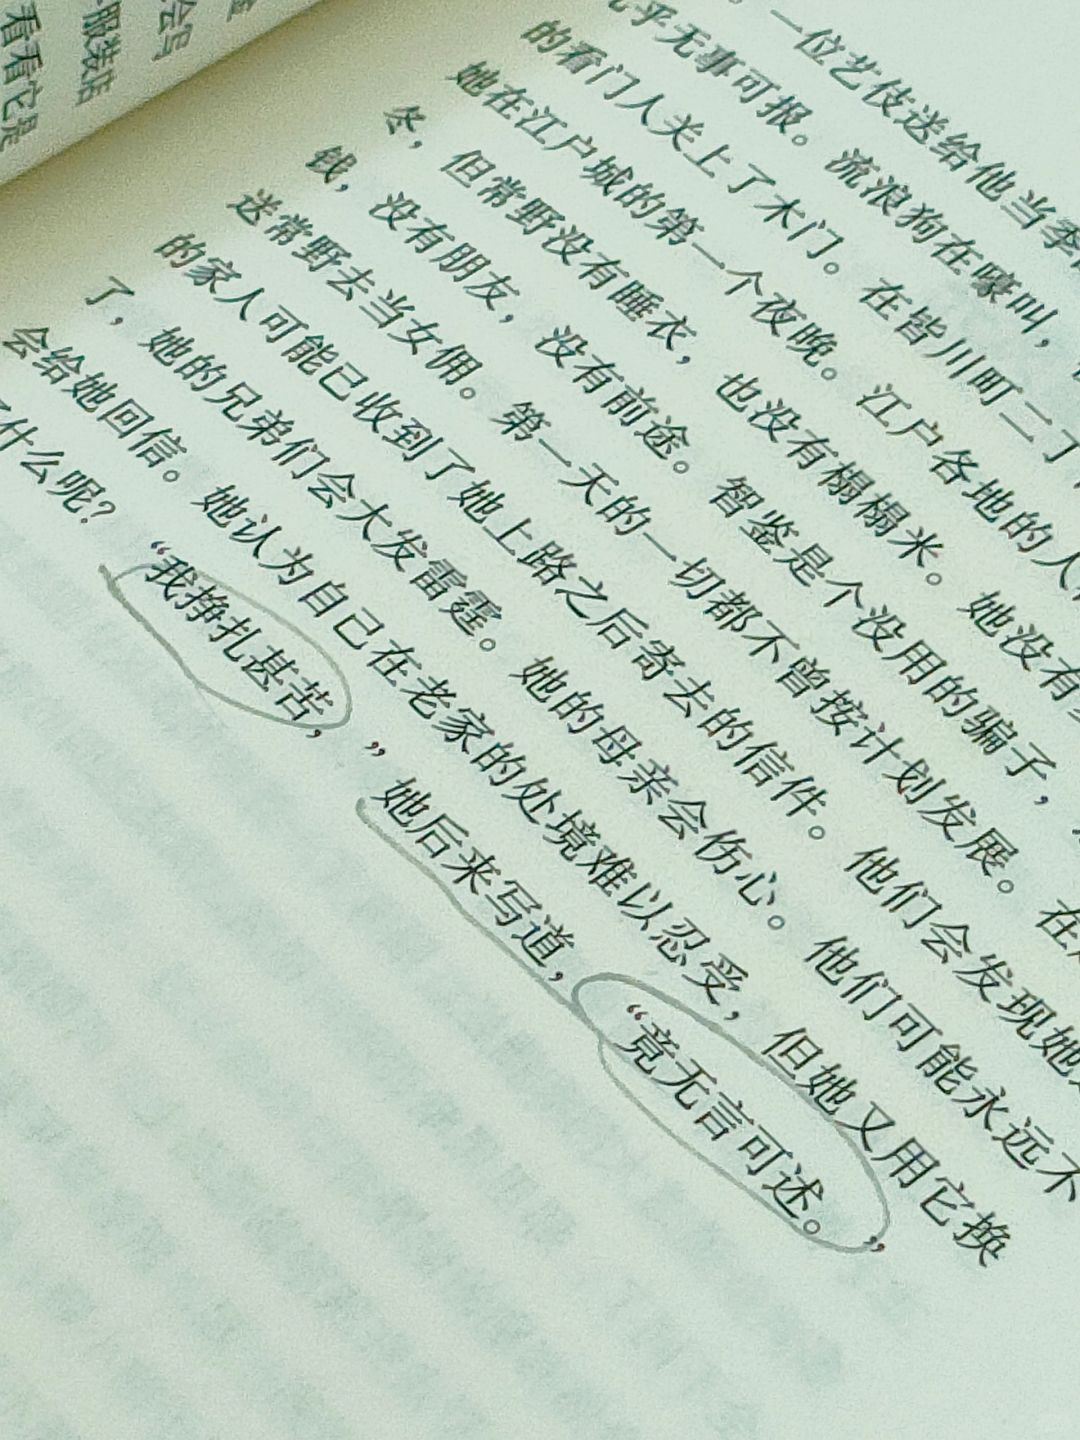 看看它是
服装店
会写
。一位艺伎送给他当季
乎无事可报。流浪狗在嚎叫，
的看门人关上了木门。在皆川町二丁
她在江户城的第一个夜晚。江户各地的人
冬，但常野没有睡衣，也没有榻榻米。她没有
钱，没有朋友，没有前途。智鉴是个没用的骗子，
送常野去当女佣。第一天的一切都不曾按计划发展。在
的家人可能已收到了她上路之后寄去的信件。他们会发现她
了，她的兄弟们会大发雷霆。她的母亲会伤心。他们可能永远不
会给她回信。她认为自己在老家的处境难以忍受，但她又用它换
了什么呢？“我挣扎甚苦，”她后来写道，“竟无言可述。”